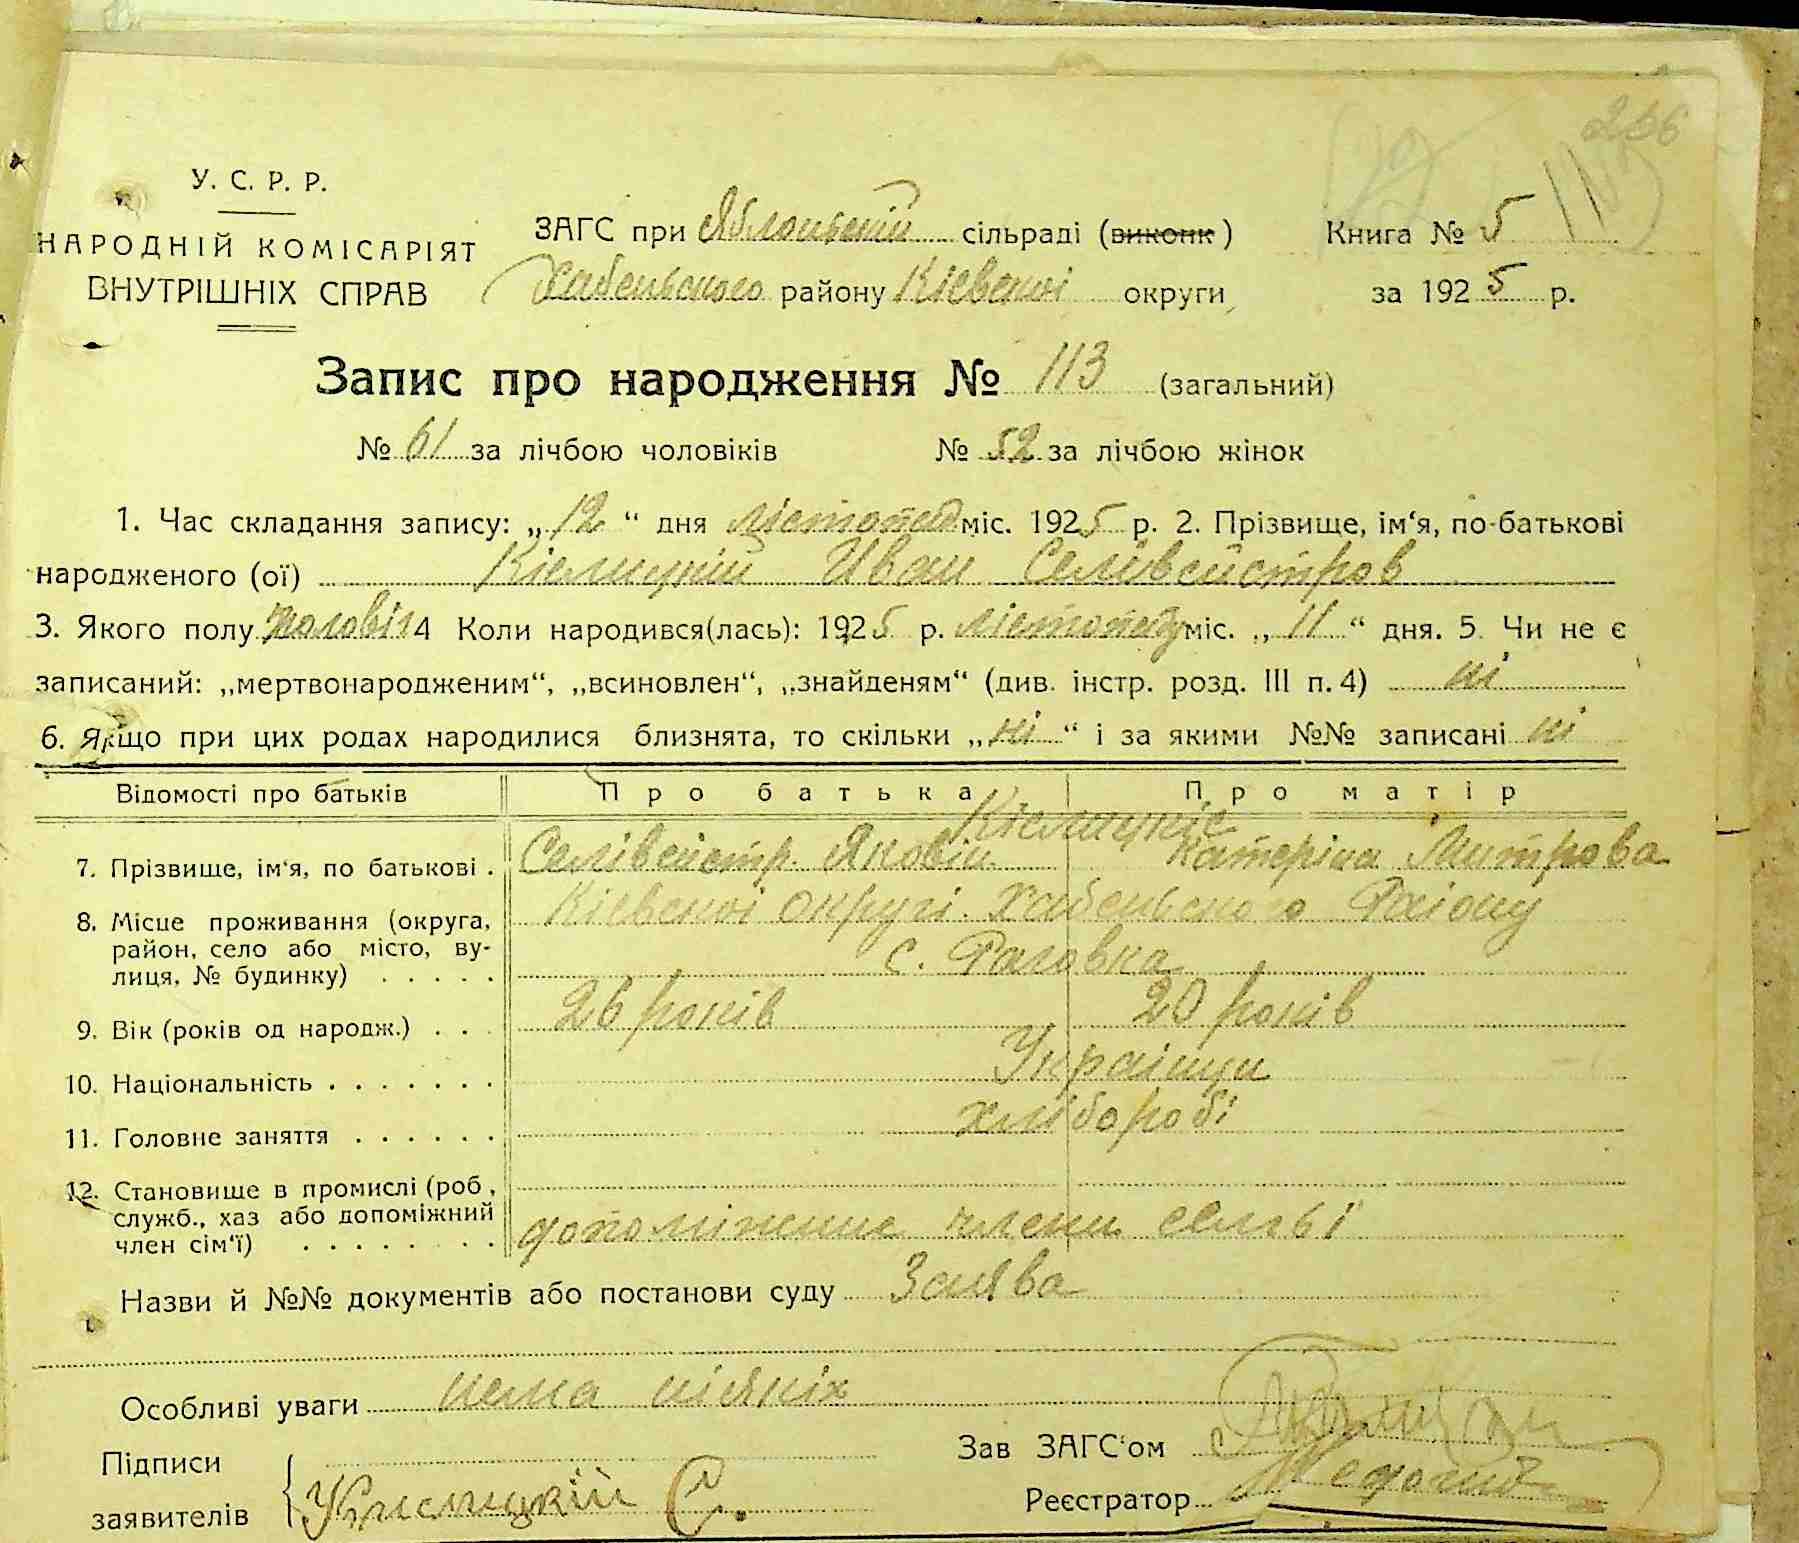 266
113
У. С. Р. Р.
НАРОДНІЙ КОМІСАРІЯТ
ВНУТРІШНІХ СПРАВ
ЗАГС при Яблонській сільраді (виконк) Книга № 5
Хабенського району Кіевскоі округи за 1925 р.
Запис про народження № 113 (загальний)
№ 61 за лічбою чоловіків № 52 за лічбою жінок
1. Час складання запису: „12“ дня лістопад міс. 1925 р. 2. Прізвище, ім‘я, по-батькові
народженого (ої) Кіслицкій Иван Селівейстров
3. Якого полу чоловіч 4 Коли народився(лась): 1925 р. лістопаду міс. „11“ дня. 5. Чи не є
записаний: „мертвонародженим“, „всиновлен“, „знайденям“ (див. інстр. розд. III п. 4) ні
6. Якщо при цих родах народилися близнята, то скільки „ні“ і за якими №№ записані ні
Відомості про батьків Про батька Про матір
Кіслицкіе
7. Прізвище, ім‘я, по батькові . Селівейстр Яковів Катеріна Митрова
8. Місце проживання (округа, Кіевскоі округі Хабенського Раіону
район, село або місто, ву-
лиця, № будинку) . . . . . с. Раговка
9. Вік (років од народж.) . . . 26 років 20 років
10. Національність . . . . . . . Украінци
11. Головне заняття . . . . . . хліборобі
12. Становище в промислі (роб.,
служб., хаз або допоміжний
член сім‘ї) . . . . . . . допоміжние члени семьі
Назви й №№ документів або постанови суду Заява
Особливі уваги нема ніякіх
Підписи Зав ЗАГС‘ом
заявителів Кислицкій С. Реєстратор